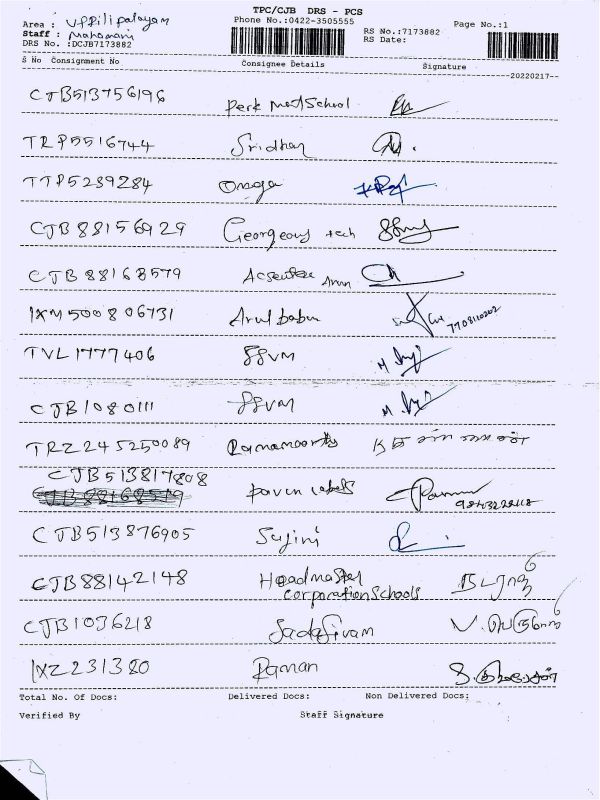 TPC/CJB DRS - PCS
Area : Uppilipalayam
Phone No.:0422-3505555
Page No.:1
Staff : Mahamani
RS No.:7173882
DRS No. :DCJB7173882
RS Date:
S No Consignment No Consignee Details Signature
20220217
CJB513756196 Perk Med School
TRP5516744 Sridhar
TTP5239284 Omega
CJB88156929 Georgeous tech
CJB88168579 Arun
IXM500806731 Arul babu 7708110202
TVL1777406 SSVM
CJB1080111 SSVM
TRZ245250089 Ramamoorthy
CJB513817808 Paven labels
CJB513876905 Sujini
CJB88142148 Headmaster
Corporation Schools
CJB1036218 Sadasivam
IXZ231380 Raman
Total No. Of Docs: Delivered Docs: Non Delivered Docs:
Verified By Staff Signature